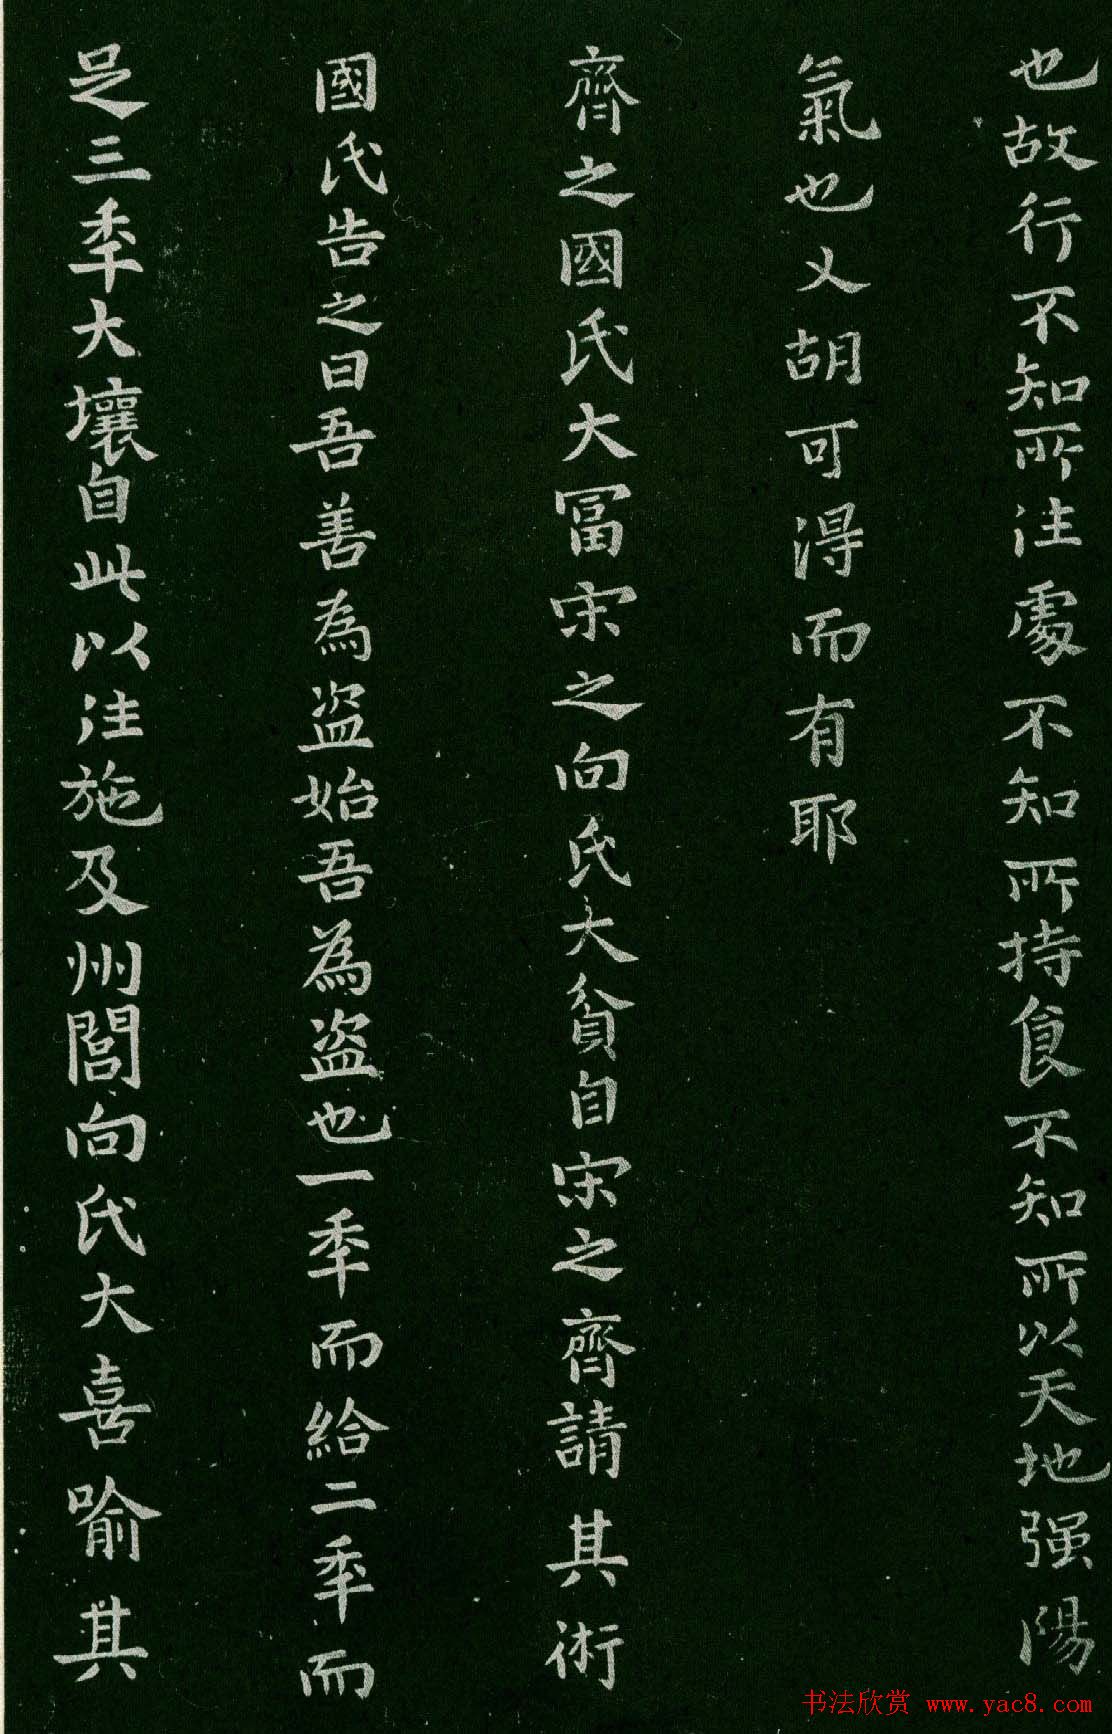 也故行不知所往處不知所持食不知所以天地强陽
氣也又胡可得而有耶
齊之國氏大冨宋之向氏大貧自宋之齊請其術
國氏告之曰吾善為盗始吾為盗也一秊而給二秊而
足三秊大壤自此以往施及州閭向氏大喜喻其
书法欣赏 www.yac8.com